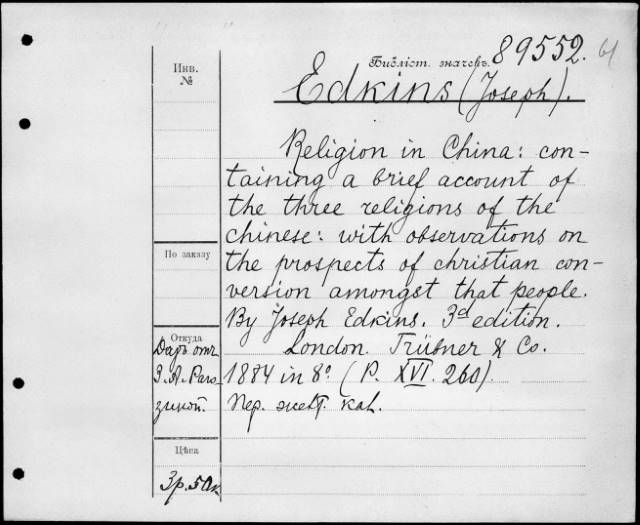 Инв.
№
Библіот. значекъ. 89552.
Edkins (Joseph).
Religion in China: con-
taining a brief account of
the three religions of the
chinese: with observations on
the prospects of christian con-
version amongst that people.
By Joseph Edkins. 3d edition.
London. Trübner & Co.
1884 in 8° (P. XVI. 260).
Пер.
По заказу
Откуда
Даръ отъ
Цѣна
3р.50к